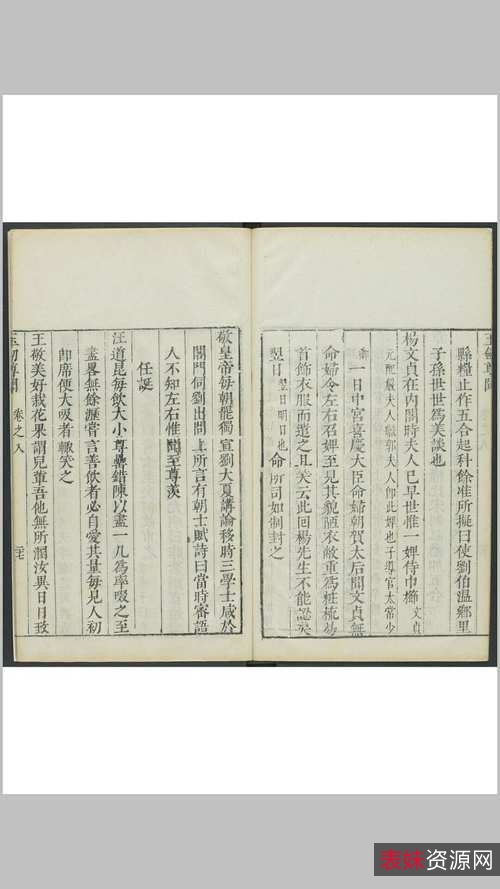 縣糧止作五合起科餘准所擬曰使劉伯溫鄉里
子孫世世爲美談也
楊文貞在內閣時夫人已早世惟一婢侍巾櫛文貞
元配嚴夫人繼郭夫人郎此婢也子導官太常少
卿一日中宮喜慶大臣命婦朝賀太后聞文貞無
命婦令左右召婢至見其貌陋衣敝重爲粧梳
首飾衣服而遣之且笑云此回楊先生不能認矣
翌日翌日明日也命所司如制封之
敬皇帝每朝罷獨宣劉大夏講論移時三學士咸於
閣門伺劉出問上所言有朝士賦詩曰當時密語
人不知左右惟聞至尊羨
任誕
汪道昆每飲大小尊罍錯陳以盡一几爲率啜之至
盡畧無餘瀝嘗言善飲者必自愛其量每見人初
卽席便大吸者輒笑之
王敬美好栽花果謂兒輩吾他無所溷汝異日日致
卷之八
表妹资源网